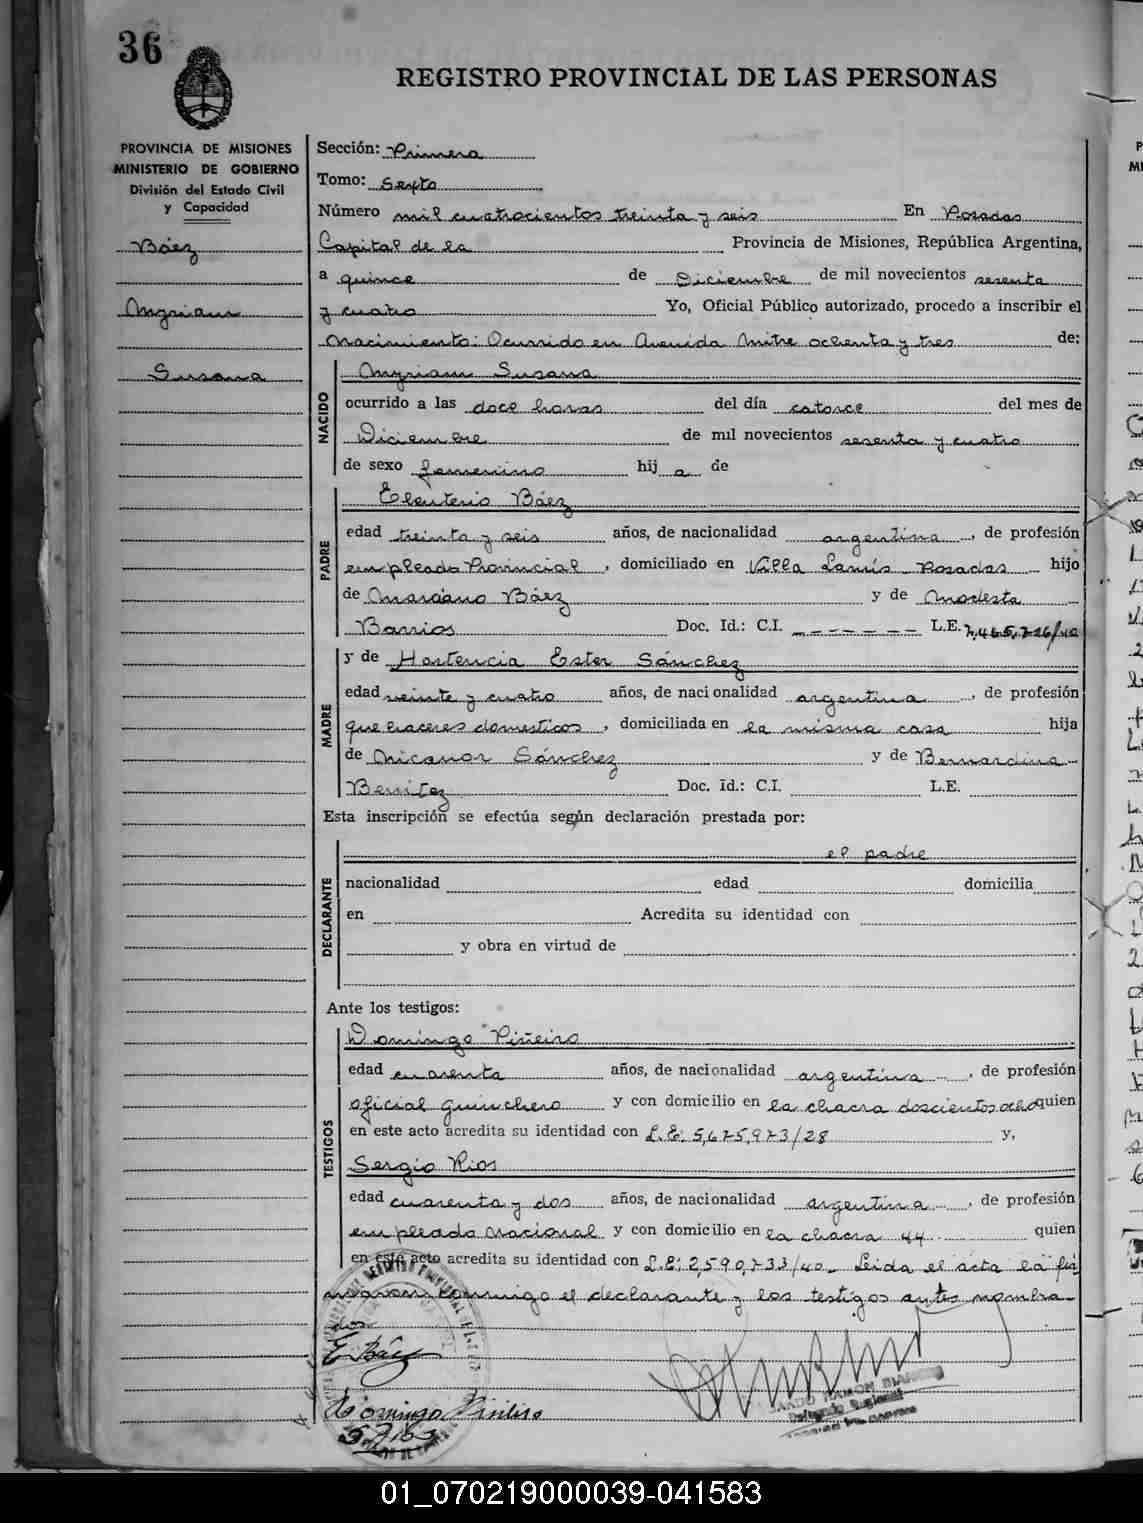 36
REGISTRO PROVINCIAL DE LAS PERSONAS
PROVINCIA DE MISIONES
MINISTERIO DE GOBIERNO
División del Estado Civil
y Capacidad
Báez
Myriam
Susana
Sección: Primera
Tomo: Sexto
Número mil cuatrocientos treinta y seis En Posadas
Capital de la Provincia de Misiones, República Argentina,
a quince de Diciembre de mil novecientos sesenta
y cuatro Yo, Oficial Público autorizado, procedo a inscribir el
Nacimiento: Ocurrido en Avenida Mitre ochenta y tres de:
NACIDO
Myriam Susana
ocurrido a las doce horas del día catorce del mes de
Diciembre de mil novecientos sesenta y cuatro
de sexo femenino hij a de
PADRE
Eleuterio Báez
edad treinta y seis años, de nacionalidad argentina, de profesión
empleado Provincial, domiciliado en Villa Lanús Posadas hijo
de Mariano Báez y de Modesta
Barrios Doc. Id.: C.I. - - - - - - - L.E.
MADRE
y de Hortencia Ester Sánchez
edad veinte y cuatro años, de nacionalidad argentina, de profesión
quehaceres domesticos, domiciliada en la misma casa hija
de Nicanor Sánchez y de Bernardina
Benitez Doc. Id.: C.I. L.E.
Esta inscripción se efectúa según declaración prestada por:
DECLARANTE
el padre
nacionalidad edad domicilia
en Acredita su identidad con
y obra en virtud de
Ante los testigos:
TESTIGOS
Domingo Piñeiro
edad cuarenta años, de nacionalidad argentina, de profesión
oficial guinchero y con domicilio en la chacra doscientos ocho quien
en este acto acredita su identidad con L.E: 5,675,973/28 y,
Sergio Rios
edad cuarenta y dos años, de nacionalidad argentina, de profesión
empleado nacional y con domicilio en la chacra 44 quien
en este acto acredita su identidad con L.E: 2,590,733/40_ Leida el acta la fir
maron conmigo el declarante y los testigos antes nombra_
dos
E. Báez
Domingo Piñeiro
S Rios
RAMON
Delegado Regional
01_070219000039-041583